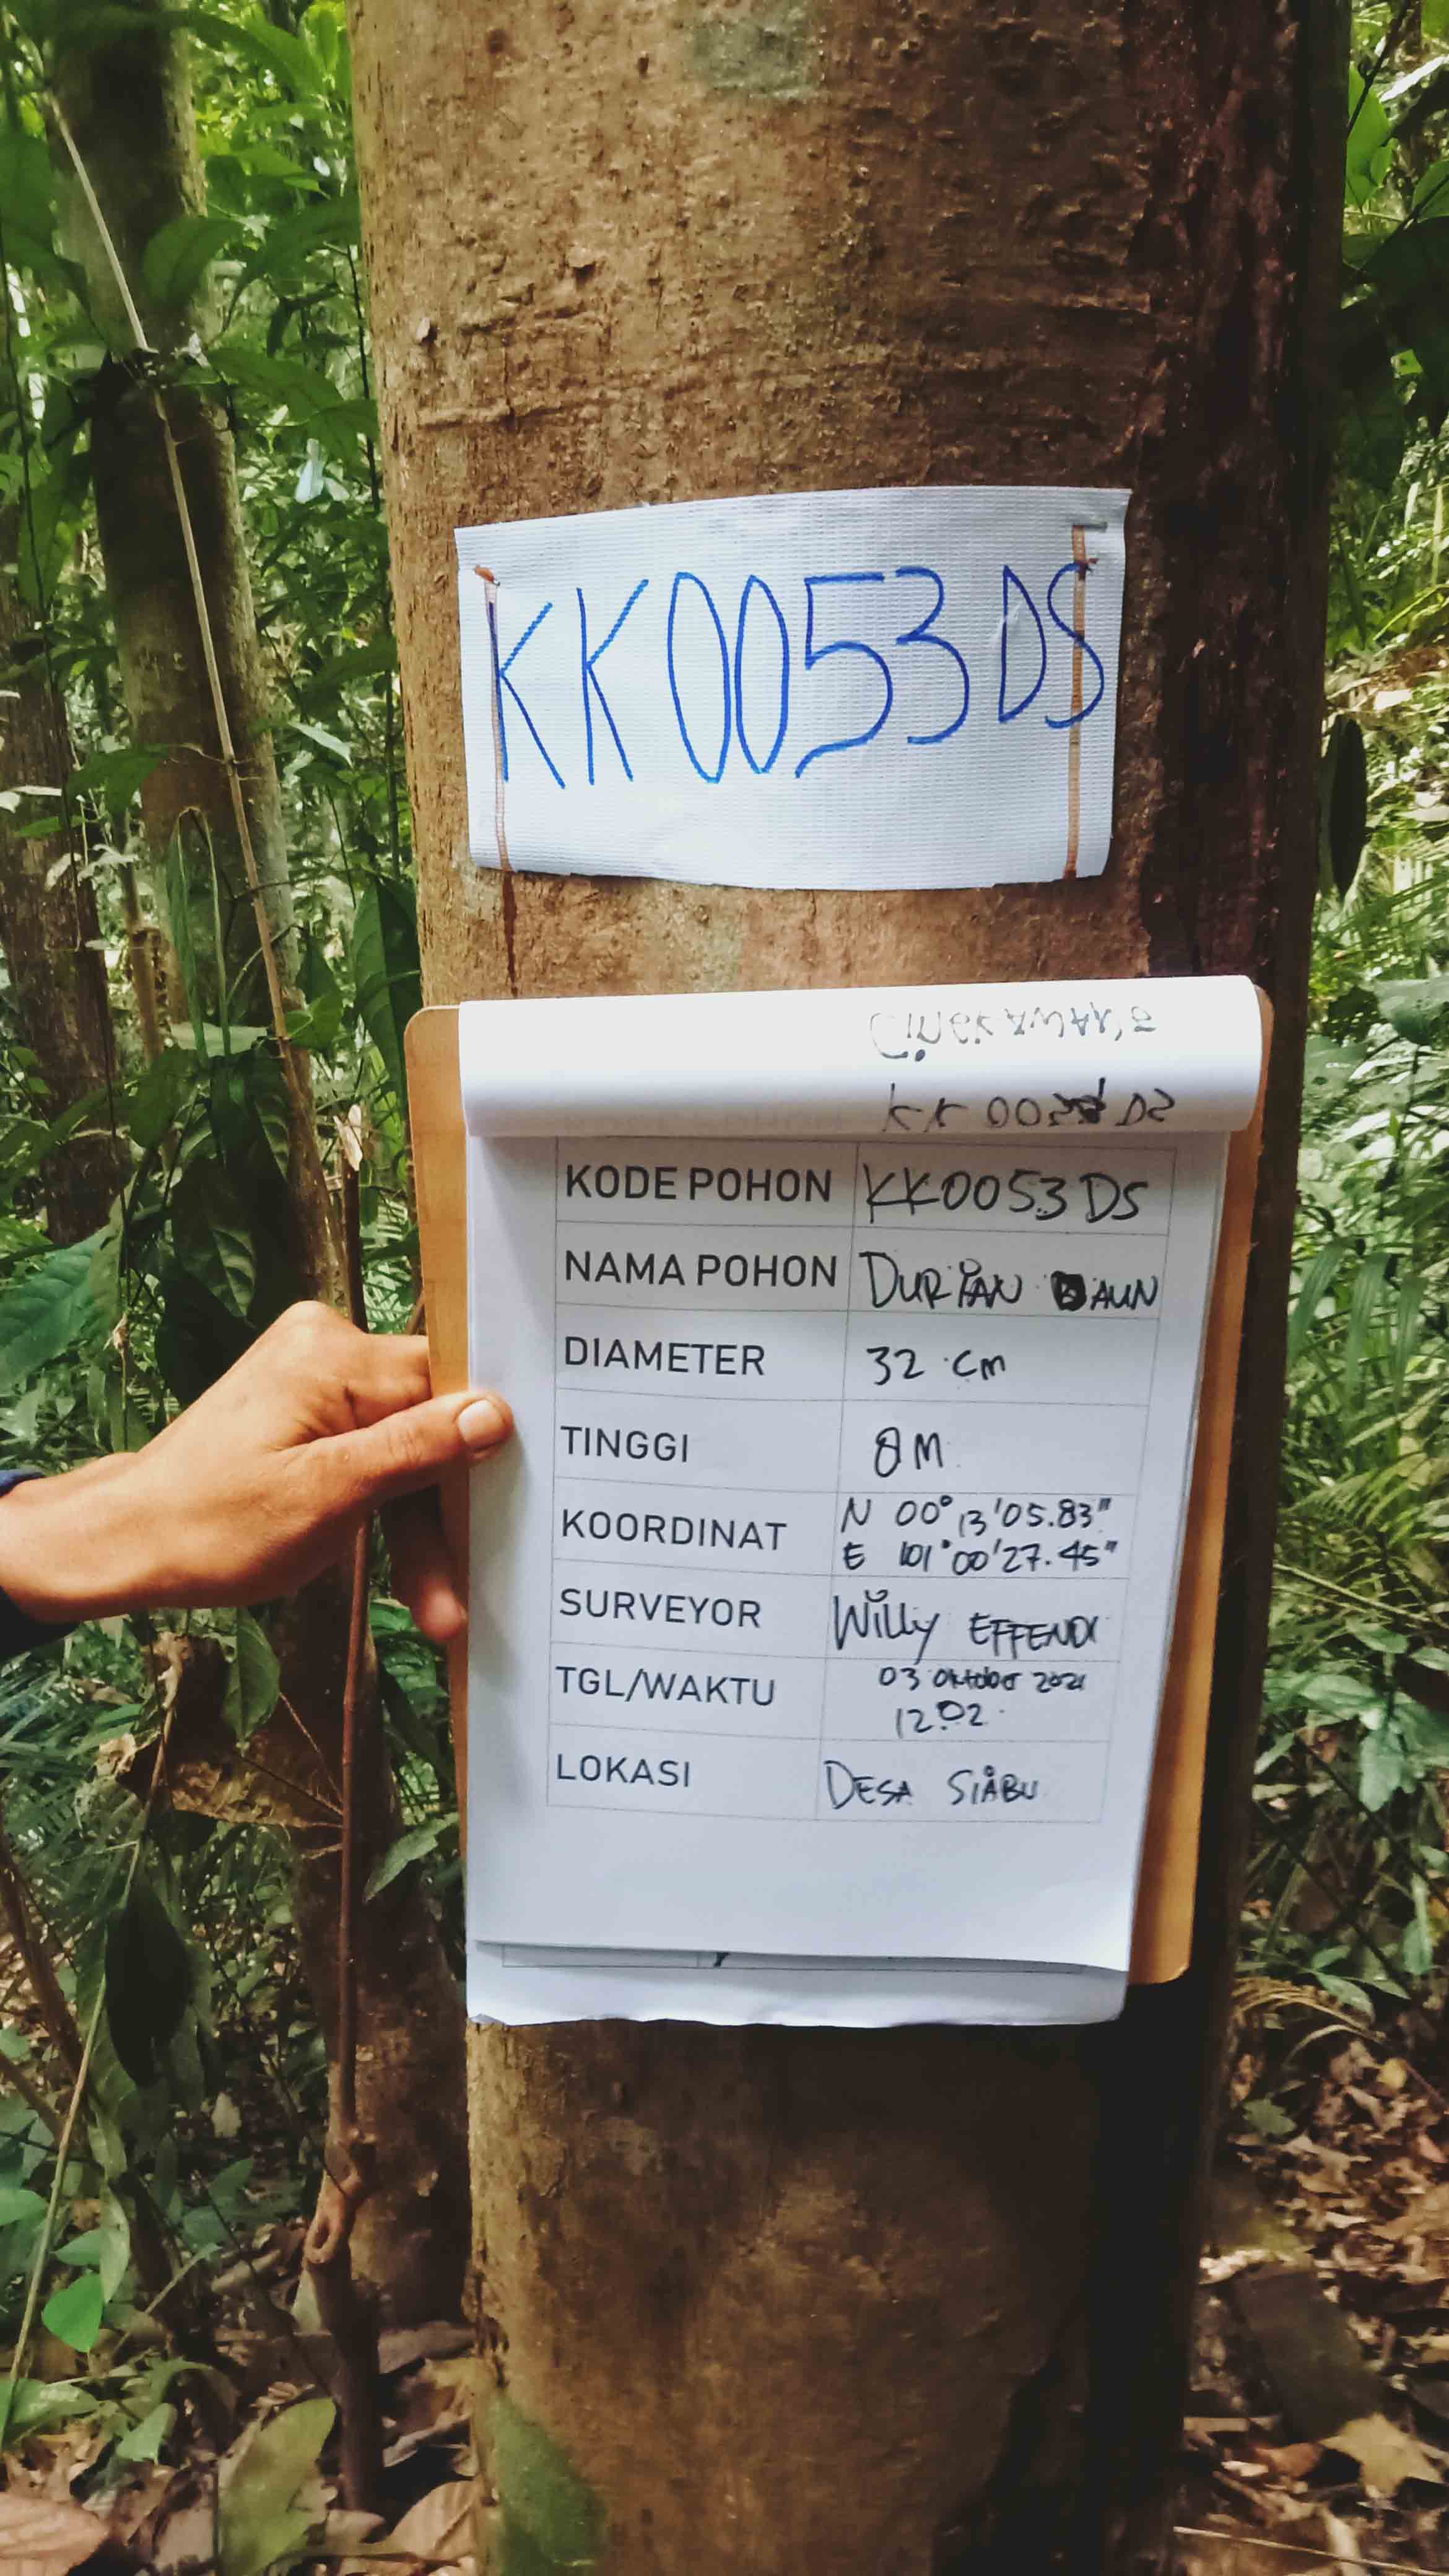 KK0053DS
KODE POHON KK0053 DS
NAMA POHON DURIAN DAUN
DIAMETER 32 cm
TINGGI 8 M
KOORDINAT N 00° 13'05.83"
E 101°00'27.45"
SURVEYOR Willy EFFENDI
TGL/WAKTU 03 Oktober 2021
12.02
LOKASI DESA SIABU